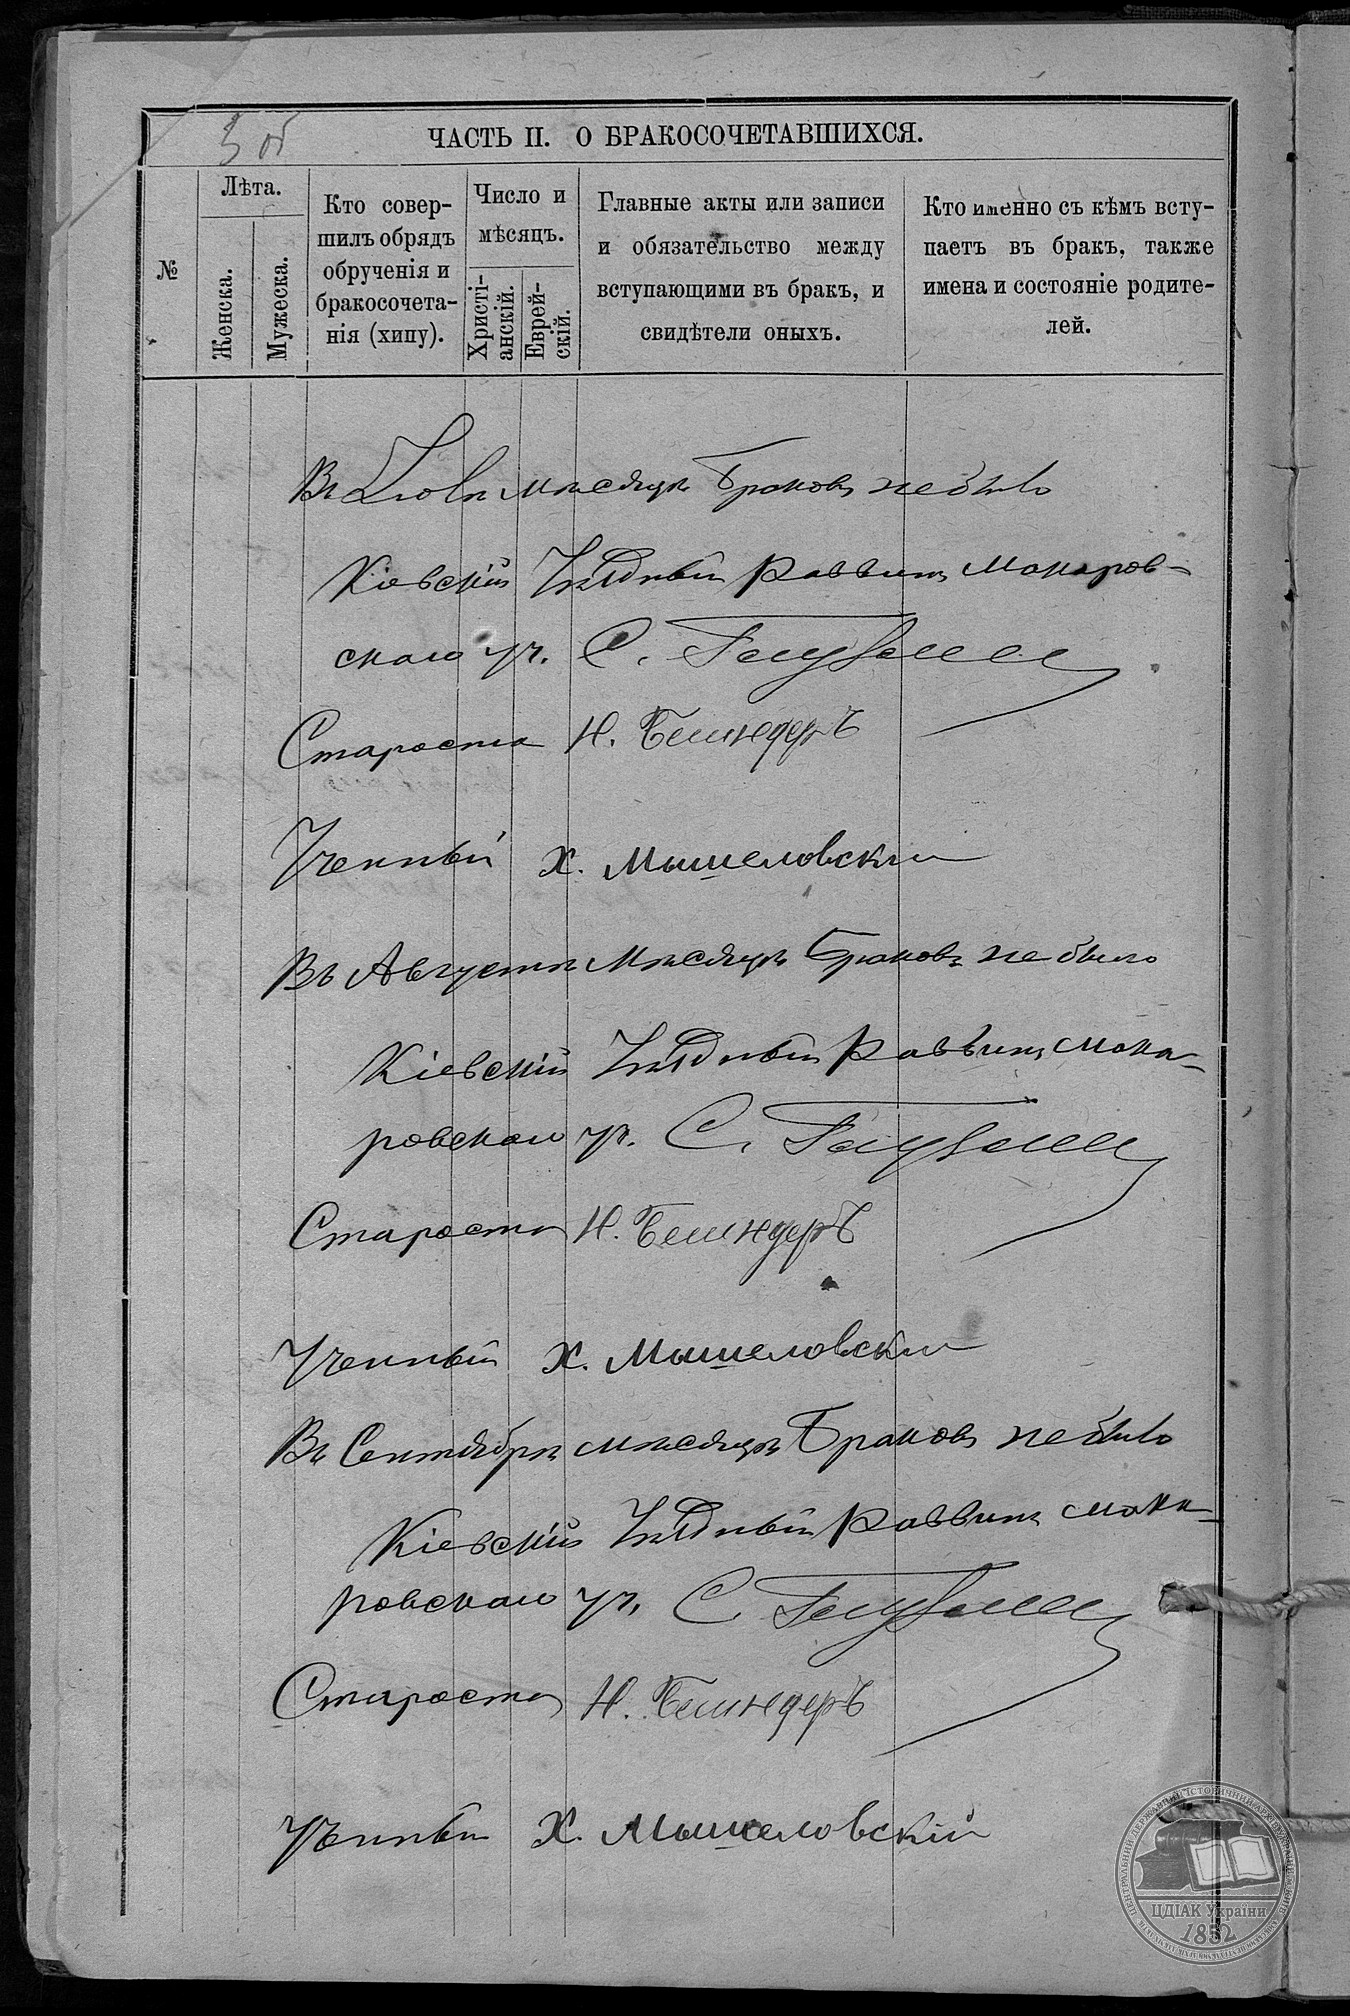 3 об
ЧАСТЬ II. О БРАКОСОЧЕТАВШИХСЯ.
№
Лѣта.
Женска.
Мужеска.
Кто совер-
шилъ обрядъ
обрученія и
бракосочета-
нія (хипу).
Число и
мѣсяцъ.
Христі-
анскій.
Еврей-
скій.
Главные акты или записи
и обязательство между
вступающими въ бракъ, и
свидѣтели оныхъ.
Кто именно съ кѣмъ всту-
паетъ въ бракъ, также
имена и состояніе родите-
лей.
Въ Іюлѣ мѣсяцѣ Браковъ не было
Кіевскій Уѣздный Раввинъ Макаров-
скаго уч. С.
Староста Н.
Ученный Х. Мышеловскій
Въ Августѣ мѣсяцѣ Браковъ не было
Кіевскій Уѣздный Раввинъ Мака-
ровскаго уч. С.
Староста Н.
Ученный Х. Мышеловскій
Въ Сентябрѣ мѣсяцѣ Браковъ не было
Кіевскій Уѣздный Раввинъ Мака-
ровскаго уч. С.
Староста Н.
Ученный Х. Мышеловскій
ЦДІАК України
1852